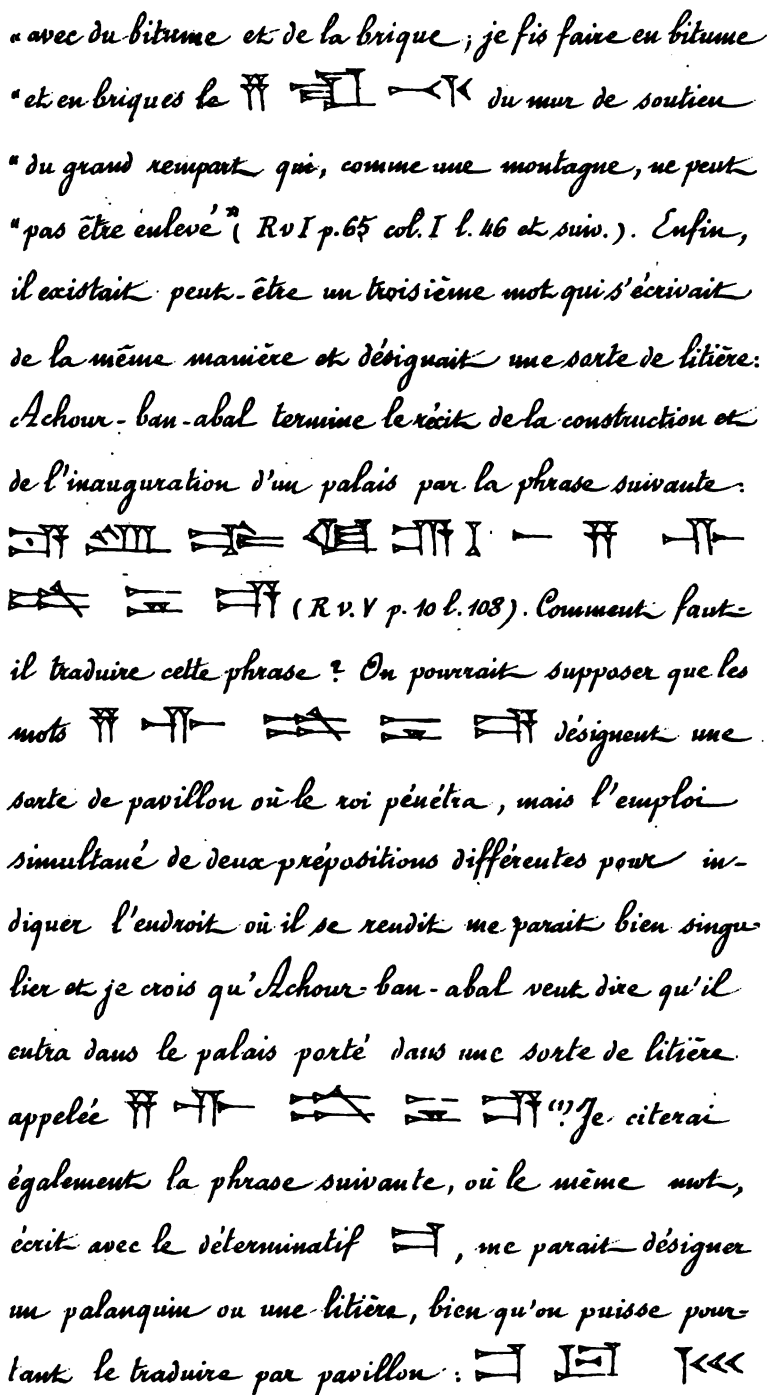 "avec du bitume et de la brique ; je fis faire en bitume
"et en briques le du mur de soutien
"du grand rempart qui, comme une montagne, ne peut
"pas être enlevé" ( R v I p. 65 col. I l. 46 et suiv. ). Enfin,
il existait peut-être un troisième mot qui s'écrivait
de la même manière et désignait une sorte de litière:
Achour-ban-abal termine le récit de la construction et
de l'inauguration d'un palais par la phrase suivante:
( R v. V p. 10 l. 108 ). Comment faut-
il traduire cette phrase ? On pourrait supposer que les
mots désignent une
sorte de pavillon où le roi pénétra, mais l'emploi
simultané de deux prépositions différentes pour in-
diquer l'endroit où il se rendit me parait bien singu-
lier et je crois qu'Achour-ban-abal veut dire qu'il
entra dans le palais porté dans une sorte de litière
appelée (1) Je citerai
également la phrase suivante, où le même mot,
écrit avec le déterminatif , me parait désigner
un palanquin ou une litière, bien qu'on puisse pour-
tant le traduire par pavillon :